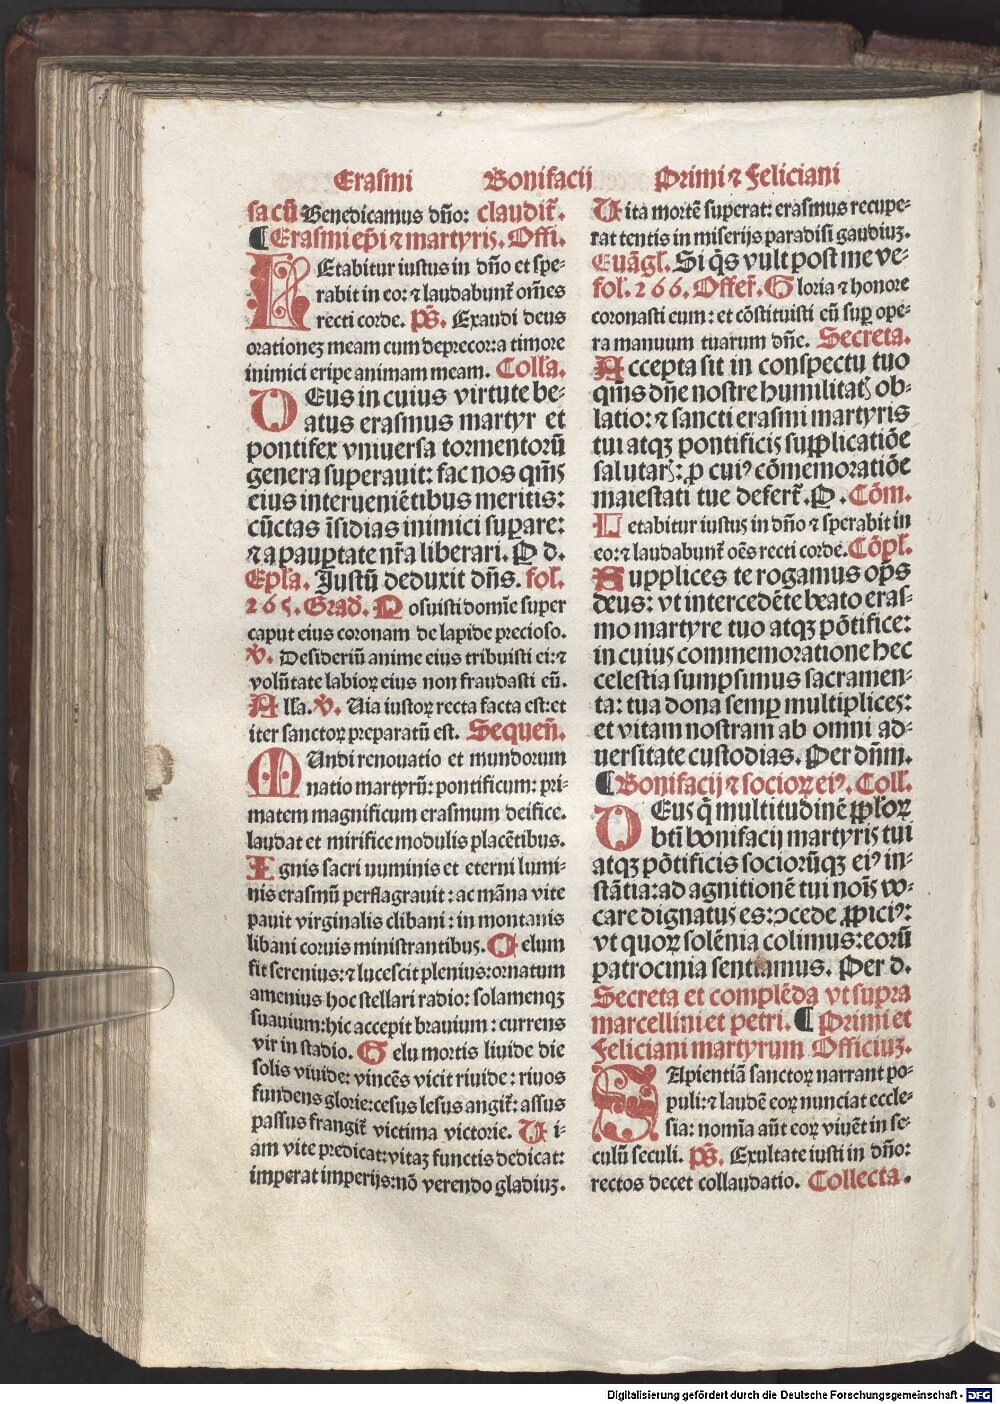 Erasmi Bonifacij Primi ⁊ Feliciani
sacū Benedicamus dño: claudit̃.
¶Erasmi ep̄i ⁊ martyris. Offi.
LEtabitur iustus in dño et spe-
rabit in eo: ⁊ laudabunt̃ om̄es
recti corde. p̄s. Exaudi deus
orationeꝫ meam cum deprecor: a timore
inimici eripe animam meam. Coll̄a.
DEus in cuius virtute be-
atus erasmus martyr et
pontifex vniuersa tormentorū
genera superauit: fac nos qm̄s
eius interueniētibus meritis:
cūctas īsidias inimici suꝑare:
⁊ a pauꝑtate nr̄a liberari. P d.
Epl̄a. Justū deduxit dñs. fol.
265. Grad̄. Posuisti domīe super
caput eius coronam de lapide precioso.
v̄. Desideriū anime eius tribuisti ei: ⁊
volūtate labioꝝ eius non fraudasti eū.
All̄a. v̄. Uia iustoꝝ recta facta est: et
iter sanctoꝝ preparatū est. Sequen̄.
MUndi renouatio et mundorum
natio martyrū: pontificum: pri-
matem magnificum erasmum deifice.
laudat et mirifice modulis placētibus.
Ignis sacri numinis et eterni lumi-
nis erasmū perflagrauit: ac māna vite
pauit virginalis clibani: in montanis
libani coruis ministrantibus. Celum
fit serenius: ⁊ lucescit plenius: ornatum
amenius hoc stellari radio: solamenqꝫ
suauium: hic accepit brauium: currens
vir in stadio. Gelu mortis liuide die
solis viuide: vincēs vicit riuide: riuos
fundens glorie: cesus lesus angit̃: assus
passus frangit̃ victima victorie. Ui-
am vite predicat: vitaꝫ functis dedicat:
imperat imperijs: nō verendo gladiuꝫ.
Uita mortē superat: erasmus recupe-
rat tentis in miserijs paradisi gaudiuꝫ.
Euāgl̄. Si q̄s vult post me ve-
fol. 266. Offer̄. Gloria ⁊ honore
coronasti eum: et cōstituisti eū suꝑ ope-
ra manuum tuarum dñe. Secreta.
Accepta sit in conspectu tuo
qm̄s dñe nostre humilitatꝭ ob-
latio: ⁊ sancti erasmi martyris
tui atqꝫ pontificis supplicatiōe
salutarꝭ: ꝓ cuiꝰ cōmemoratiōe
maiestati tue defert̃. P. Cōm.
Letabitur iustus in dño ⁊ sperabit in
eo: ⁊ laudabunt̃ oēs recti corde. Cōpl̄.
Supplices te rogamus op̄s
deus: vt intercedēte beato eras-
mo martyre tuo atqꝫ pōtifice:
in cuius commemoratione hec
celestia sumpsimus sacramen-
ta: tua dona semꝑ multiplices:
et vitam nostram ab omni ad-
uersitate custodias. Per dn̄m.
¶Bonifacij ⁊ socioꝝ eiꝰ. Coll̄.
DEus q̄ multitudinē pp̄loꝝ
btī bonifacij martyris tui
atqꝫ pōtificis sociorūqꝫ eiꝰ in-
stātia: ad agnitionē tui noīs vo-
care dignatus es: ↄcede ꝓpiciꝰ:
vt quoꝝ solēnia colimus: eorū
patrocinia sentiamus. Per d.
Secreta et complēda vt supra
marcellini et petri. ¶Primi et
Feliciani martyrum Officiuꝫ.
SApientiā sanctoꝝ narrant po-
puli: ⁊ laudē eoꝝ nunciat eccle-
sia: nomīa aūt eoꝝ viuēt in se-
culū seculi. p̄s. Exultate iusti in dño:
rectos decet collaudatio. Collecta.
Digitalisierung gefördert durch die Deutsche Forschungsgemeinschaft - DFG